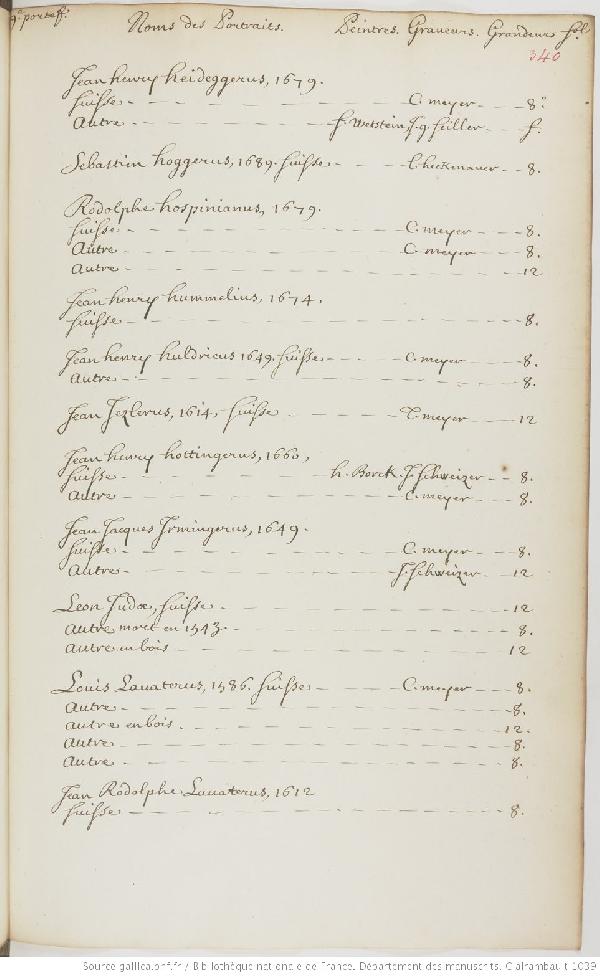 9.e porteff.
Noms des Portraits. Peintres. Graveurs. Grandeur fol.
340
Jean henry heideggerus, 1679.
Suisse C. meyer 8.o
Autre f. Wetstein J. g. Süller f.
Sebastien hoggerus, 1689. Suisse 8.
Rodolphe hospinianus, 1679.
Suisse C. meyer 8.
Autre C. meyer 8.
Autre 12
Jean henry hummelius, 1674.
Suisse 8.
Jean henry huldricus 1649. Suisse C. meyer 8.
Autre 8.
Jean Jezlerus, 1614, Suisse C. meyer 12
Jean henry hottingerus, 1660,
Suisse h. Borck. J. Schweizer 8.
Autre C. meyer 8.
Jean Jacques Irmingerus, 1649.
Suisse C. meyer 8.
Autre J. Schweizer 12
Leon Judæ, Suisse 12
Autre mort en 1543. 8.
Autre en bois 12
Louis Lavaterus, 1586. Suisse C. meyer 8.
Autre 8.
Autre en bois 12.
Autre 8.
Autre 8.
Jean Rodolphe Lavaterus, 1612
Suisse 8.
Source gallica.bnf.fr / Bibliothèque nationale de France. Département des manuscrits. Clairambault 1039